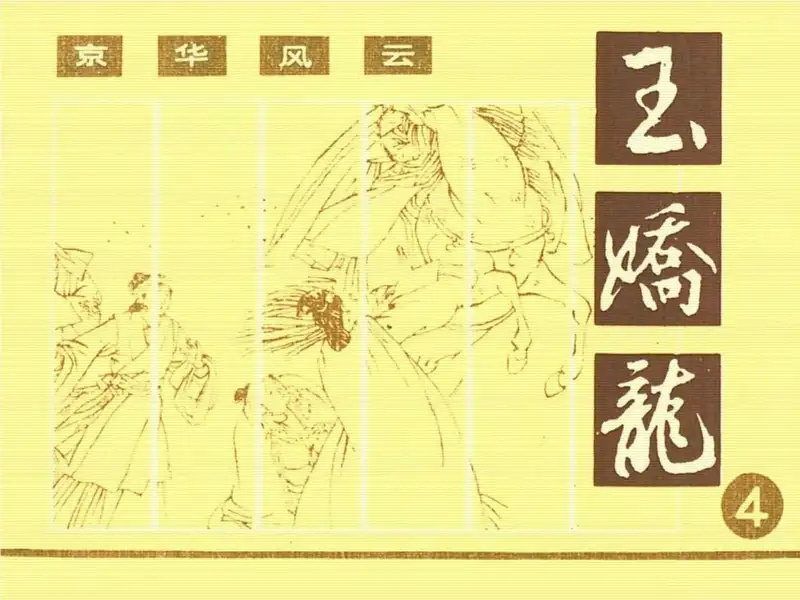 京华风云
玉
嬌
龍
4